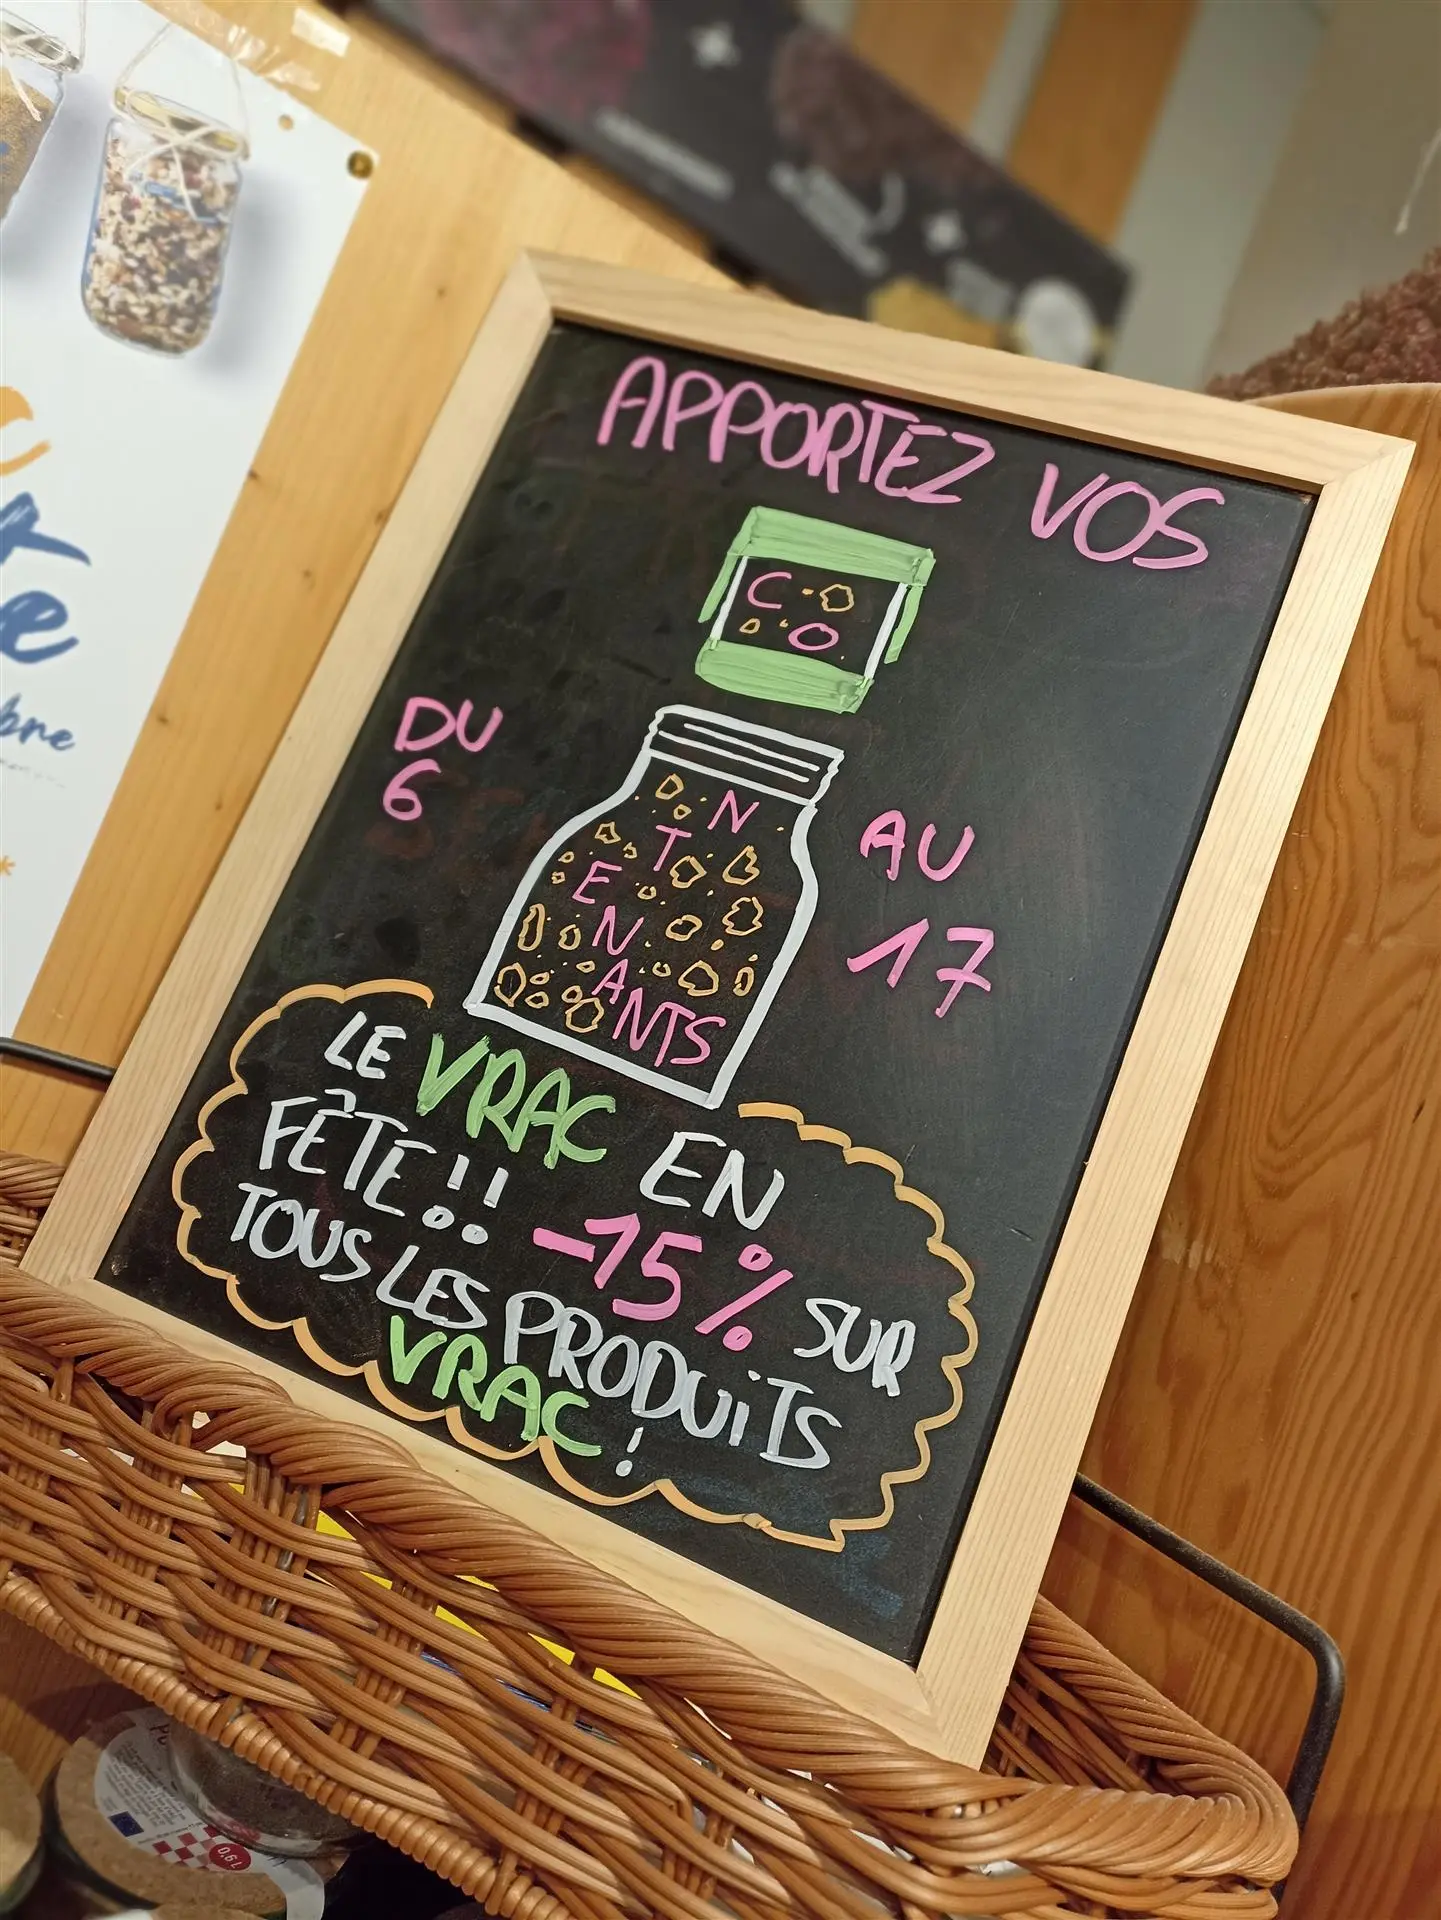 APPORTEZ VOS
CO
N
T
E
N
A
NTS
DU
6
AU
17
LE VRAC EN
FÊTE!! -15% SUR
TOUS LES PRODUiTS
VRAC!
bre